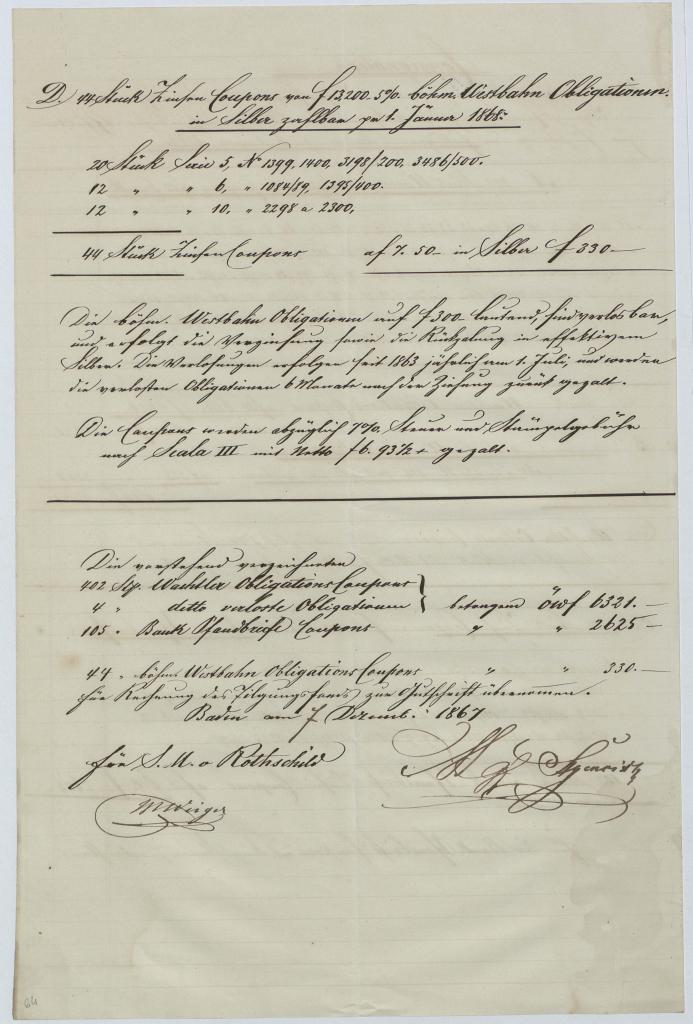 D. 44 Stück Zinsen Coupons von f 13,200. 5% böhm. Westbahn Obligationen.
in Silber zahlbar pr 1. Jänner 1868.
20 Stück Serie 5, No 1399, 1400, 3198/200, 3486/500.
12 " " 6, " 1084/89, 1395/400.
12 " " 10, " 2298 a 2300,
44 Stück Zinsen Coupons af 7. 50 — in Silber f 330 —
Die böhm. Westbahn Obligationen auf f 300 — lautend, sind verlosbar,
und erfolgt die Verzinsung sowie die Rückzalung in effektivem
Silber. Die Verlosungen erfolgen seit 1863 jährlich am 1. Juli, und werden
die verlosten Obligationen 6 Monate nach der Ziehung zurück gezalt.
Die Coupons werden abzüglich 7% Steuer und Stämpelgebühr
nach Scala III mit Netto f 6. 93½ gezalt.
Die vorstehend verzeichneten
402 Stp. Obligations Coupons
4 " ditto verloste Obligationen betragen öwf 6321. —
105 " Bank Pfandbriefe Coupons " " 2625 —
44 " böhm. Westbahn Obligations Coupons " " 330. —
für Rechnung des Tilgungsfonds zur Gutschrift übernommen.
Baden am 7 Dezemb. 1867
für S. M. v Rothschild